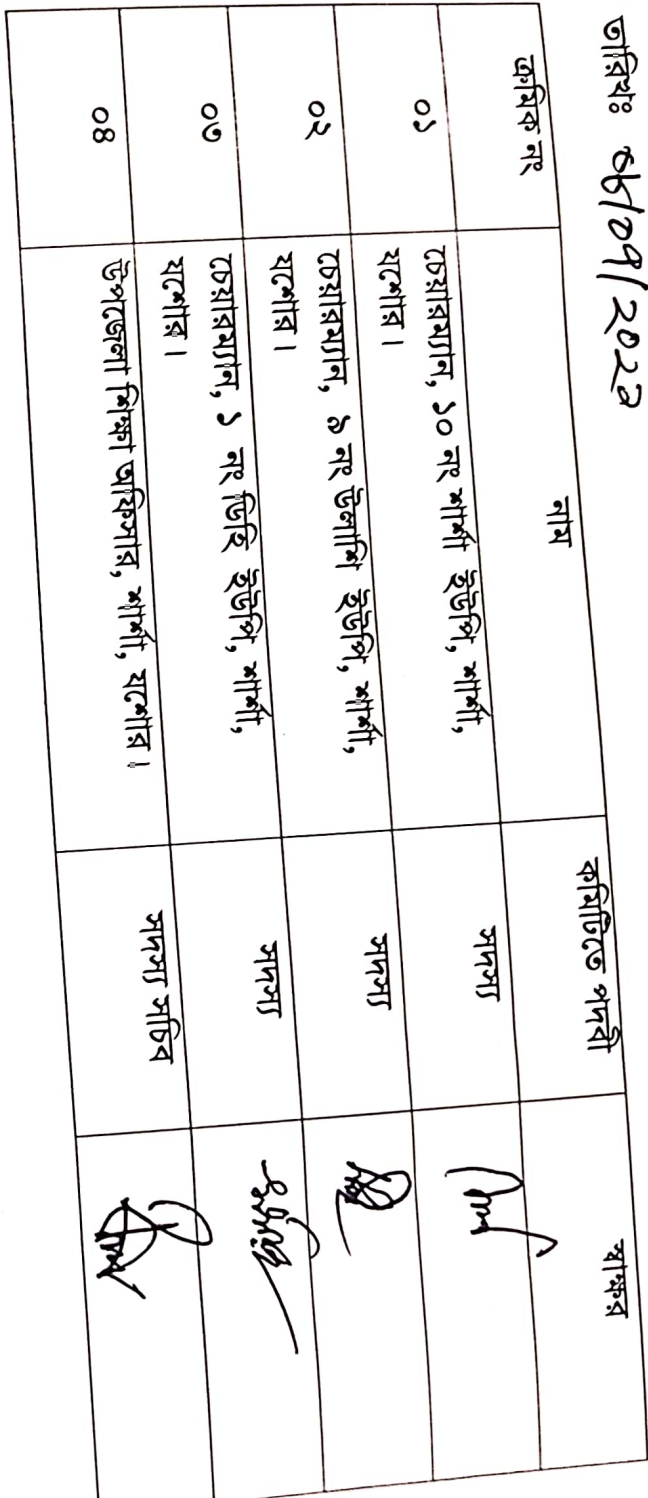 তারিখঃ ০৮/০৭/২০২০
ক্রমিক নং	নাম	কমিটিতে পদবী	স্বাক্ষর
০১	চেয়ারম্যান, ১০ নং শার্শা ইউপি, শার্শা,	সদস্য
যশোর।
০২	চেয়ারম্যান, ৯ নং উলাশি ইউপি, শার্শা,	সদস্য
যশোর।
০৩	চেয়ারম্যান, ১ নং ডিহি ইউপি, শার্শা,	সদস্য
যশোর।
০৪	উপজেলা শিক্ষা অফিসার, শার্শা, যশোর।	সদস্য সচিব